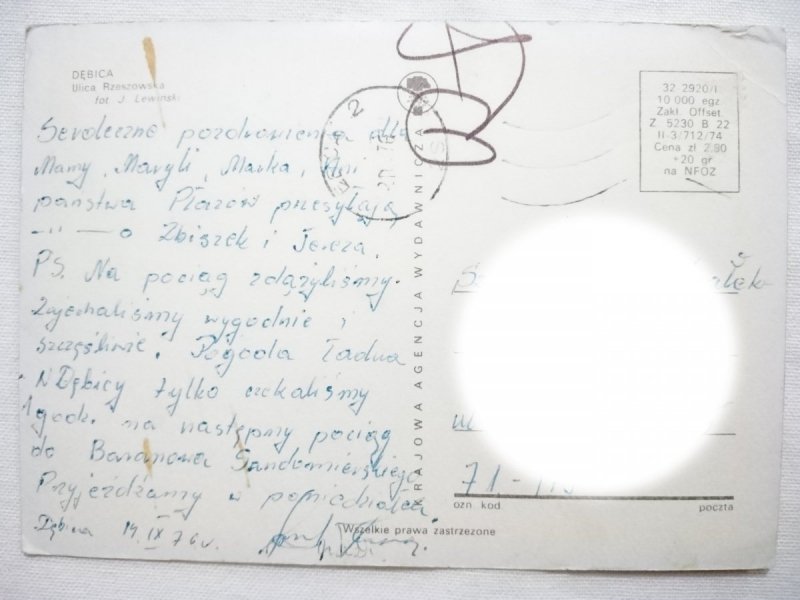 DĘBICA
Ulica Rzeszowska
fot. J. Lewiński
Serdeczne pozdrowienia dla
Mamy, Maryli, Marka,
państwa Płazów przesyłają
—"— o Zbiszek i Teresa.
PS. Na pociąg zdążyliśmy.
Zajechaliśmy wygodnie i
szczęśliwie. Pogoda ładna
W Dębicy tylko czekaliśmy
1 godz. na następny pociąg
do Baranowa Sandomierskiego
Przyjeżdżamy w poniedziałek
Dębica 14 IX 76 r.
KRAJOWA AGENCJA WYDAWNICZA
32 2920/I
10 000 egz.
Zakł. Offset.
Z 5230 B 22
II-3/712/74
Cena zł 2.80
+20 gr
na NFOZ
71-
ozn. kod
poczta
Wszelkie prawa zastrzeżone